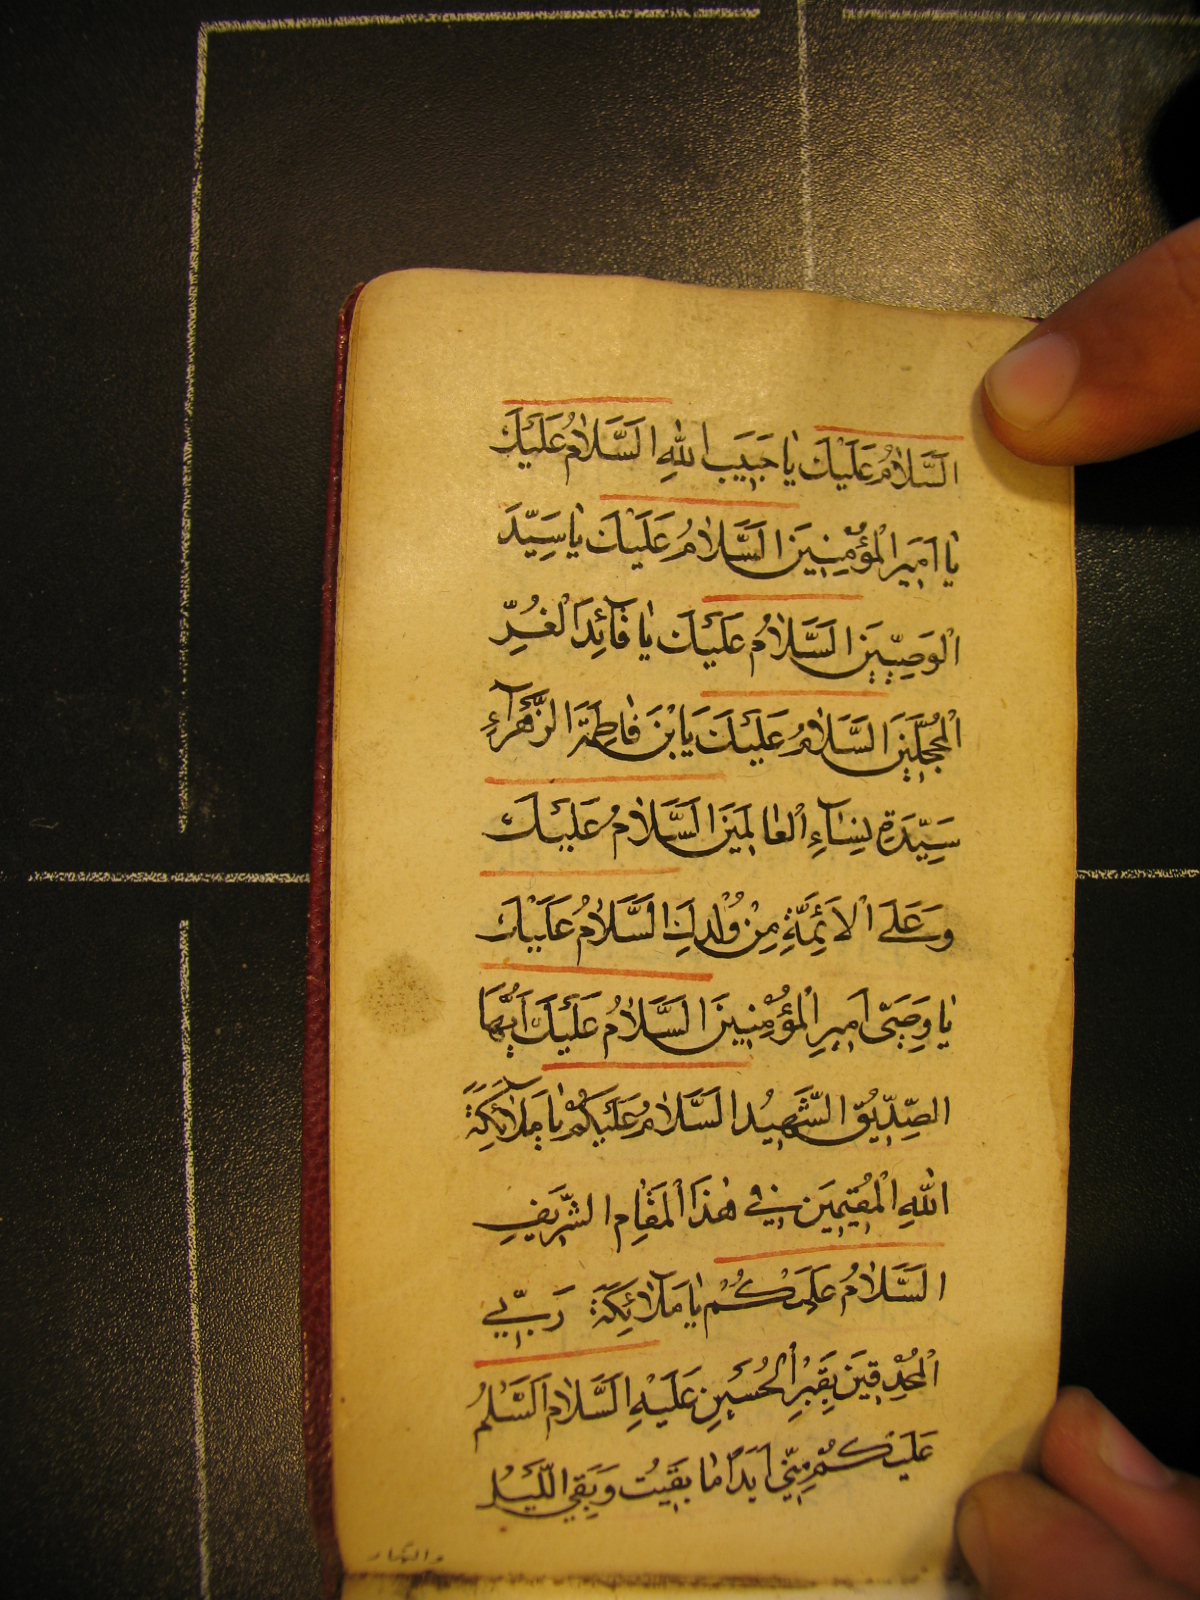 اَلسَّلامُ عَلَيْكَ يا حَبيبَ اللهِ اَلسَّلامُ عَلَيْكَ
يا اَميرَ الْمُؤْمِنينَ اَلسَّلامُ عَلَيْكَ يا سَيِّدَ
الْوَصِيّينَ اَلسَّلامُ عَلَيْكَ يا قآئِدَ الْغُرِّ
الْمُحَجَّلينَ اَلسَّلامُ عَلَيْكَ يَا بْنَ فاطِمَةَ الزَّهْرآءِ
سَيِّدَةِ نِسآءِ الْعالَمينَ اَلسَّلامُ عَلَيْكَ
وَعَلَى الْاَئِمَّةِ مِنْ وُلْدِكَ اَلسَّلامُ عَلَيْكَ
يا وَصِىَّ اَميرِ الْمُؤْمِنينَ اَلسَّلامُ عَلَيْكَ اَيُّهَا
الصِّدّيقُ الشَّهيدُ اَلسَّلامُ عَلَيْكُمْ يا مَلآئِكَةَ
اللهِ الْمُقيمينَ في هٰذَا الْمَقامِ الشَّريفِ
اَلسَّلامُ عَلَيْكُمْ يا مَلآئِكَةَ رَبّي
الْمُحْدِقينَ بِقَبْرِ الْحُسَيْنِ عَلَيْهِ السَّلامُ اَلسَّلامُ
عَلَيْكُمْ مِنّي اَبَداً ما بَقيتُ وَبَقِيَ اللَّيْلُ
والنهار